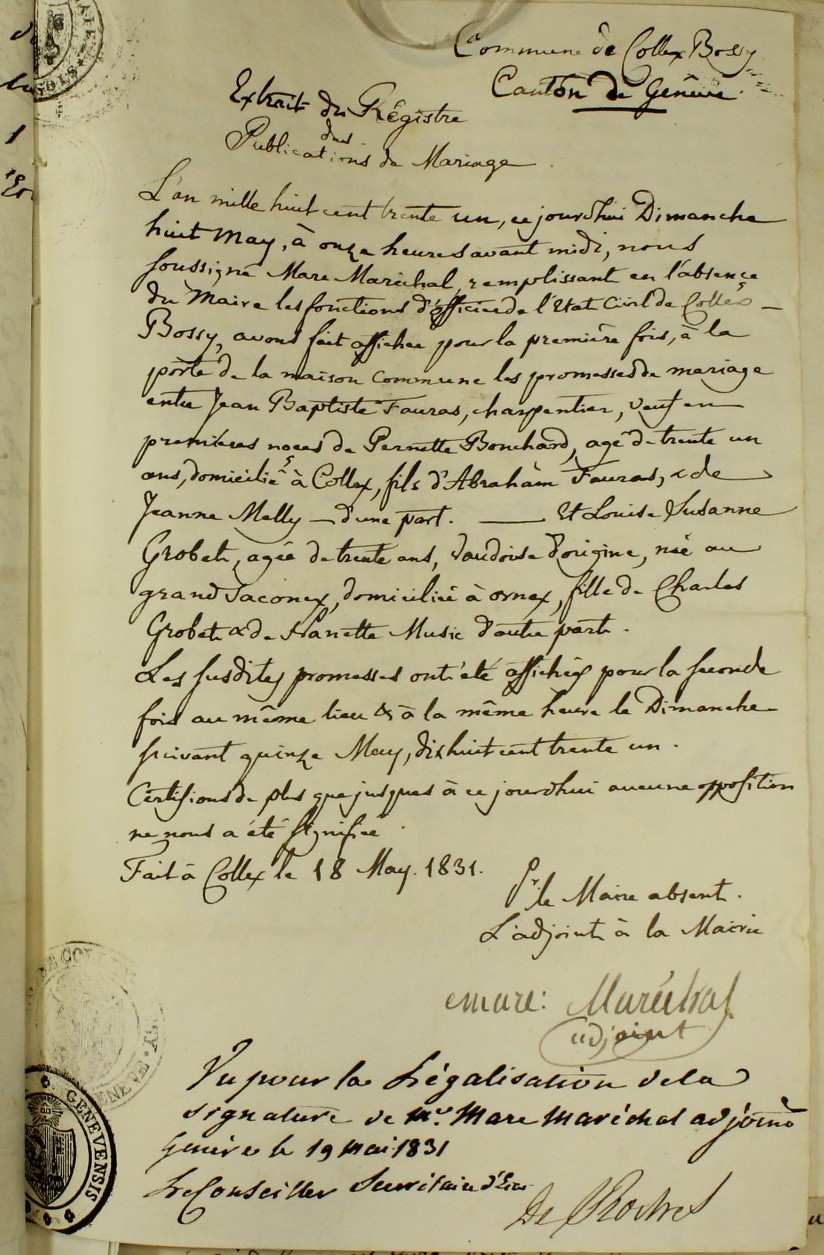 Commune de Collex Bossy
Canton de Genève.
Extrait du Régistre
des
Publications de Mariage.
L'an mille huit cent trente un, ce jourd'hui Dimanche
huit May, à onze heures avant midi, nous
soussigné Marc Maréchal, remplissant en l'absence
du Maire les fonctions d'officier de l'Etat Civil de Collex –
Bossy, avons fait afficher pour la première fois, à la
porte de la maison commune les promesses de mariage
entre Jean Baptiste Fauras, charpentier, veuf en
premières noces de Pernette Bouchard, agé de trente un
ans, domicilié à Collex, fils d'Abraham Fauras, & de
Jeanne Melly — d'une part. — Et Louise Susanne
Grobet, agée de trente ans, Vaudoise d'origine, née au
grand Saconex, domiciliée à Ornex, fille de Charles
Grobet & de Nanette Music d'autre part.
Les susdites promesses ont été affichées pour la seconde
fois au même lieu & à la même heure le Dimanche
suivant quinze May, dix huit cent trente un.
Certifions de plus que jusques à ce jourd'hui aucune opposition
ne nous a été signifiée.
Fait à Collex le 18 May. 1831.
Pr le Maire absent.
L'adjoint à la Mairie
marc: Maréchal
adjoint
Vu pour la Légalisation de la
signature de Mr. Marc Maréchal adjoint
Genève le 19 mai 1831
Le Conseiller Secrétaire d'Etat
GENEVENSIS